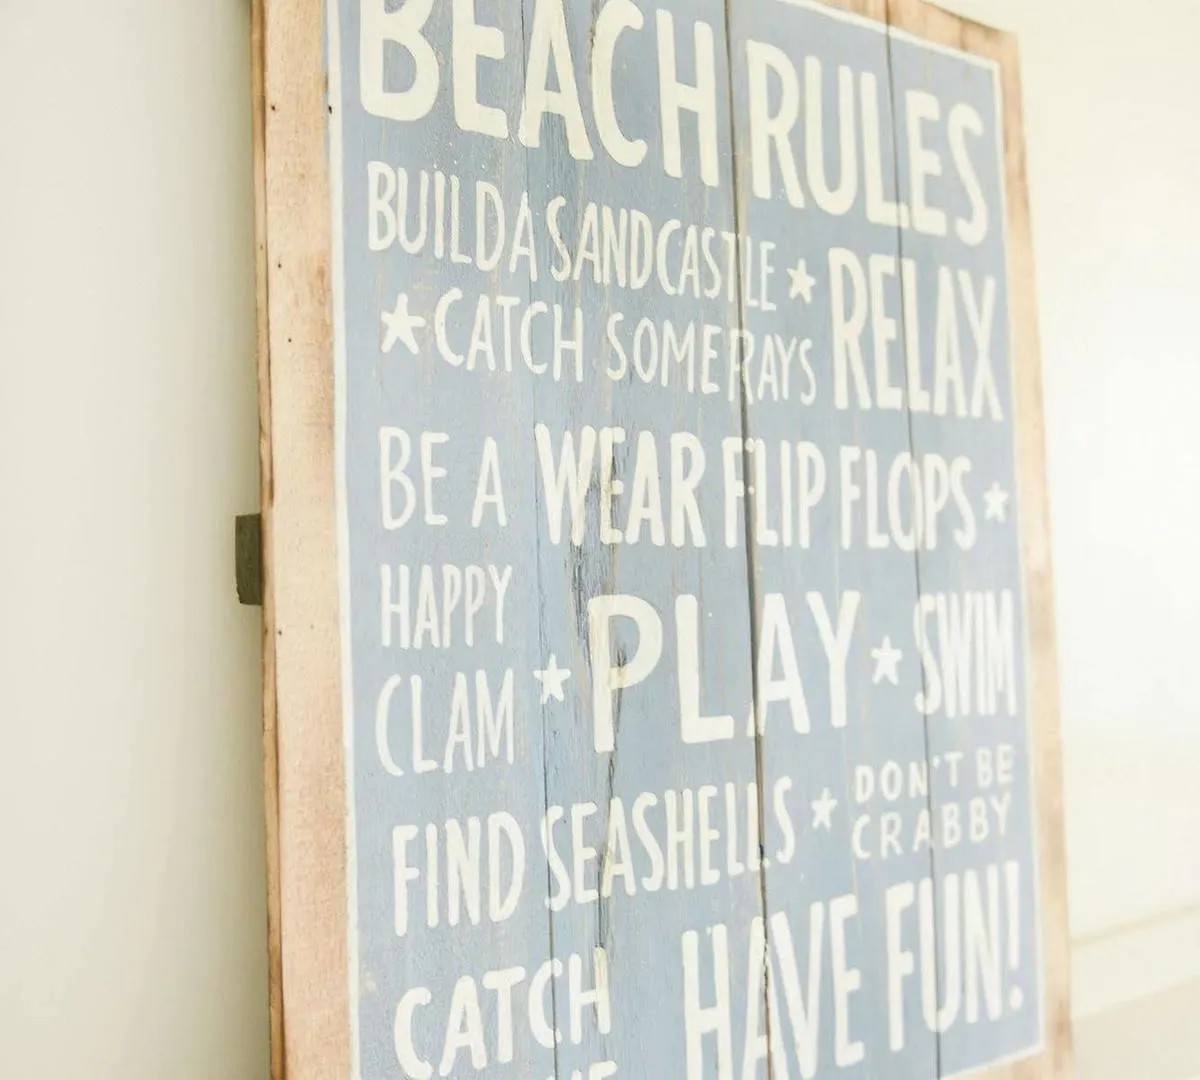 BEACH RULES
BUILD A SANDCASTLE ★ RELAX
★ CATCH SOME RAYS
BE A
HAPPY
CLAM ★
WEAR FLIP FLOPS ★
PLAY ★ SWIM
FIND SEASHELLS ★ DON'T BE
CRABBY
CATCH
HAVE FUN!